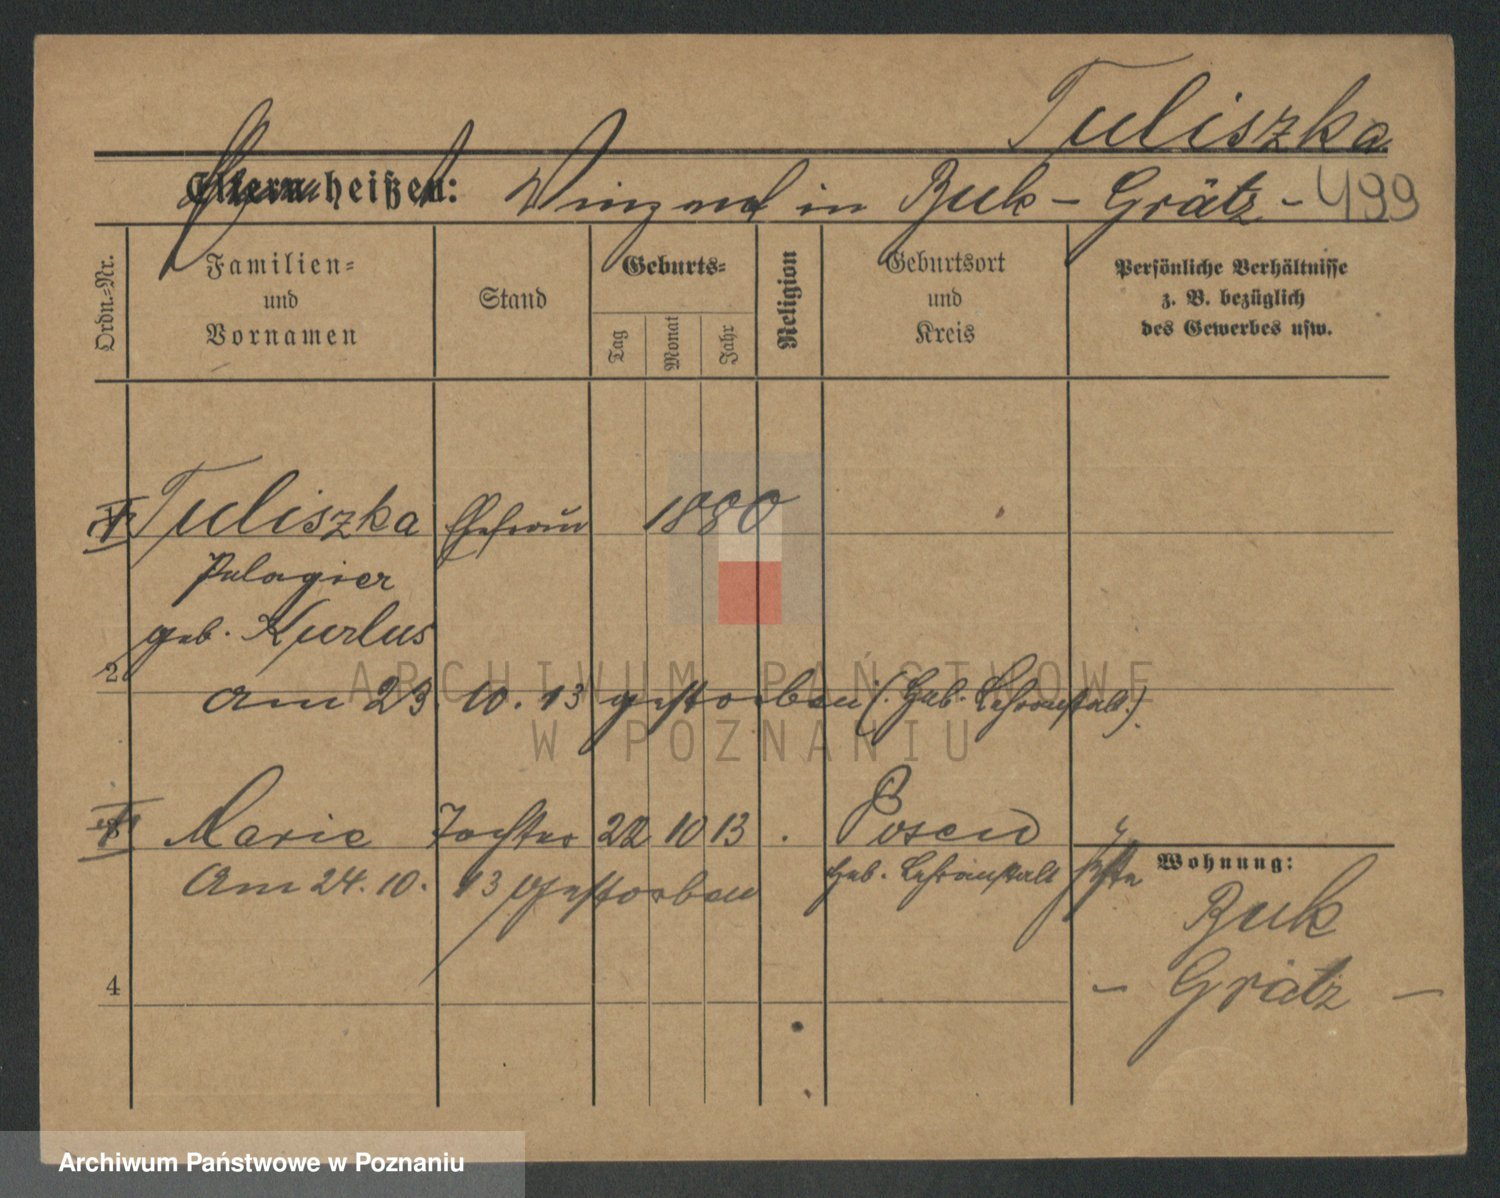 Tuliszka
Eltern heißen: in Buk - Grätz - 499
Ordn.-Nr.
Familien-
und
Vornamen
Stand
Geburts-
Tag
Monat
Jahr
Religion
Geburtsort
und
Kreis
Persönliche Verhältnisse
z. B. bezüglich
des Gewerbes usw.
Tuliszka Ehefrau 1880
Pelagier
geb. Kurlus
2
am 23. 10. 13 gestorben (Heb. Lehranstalt).
Marie Tochter 22 10 13 Posen
Am 24. 10. 13 gestorben
Heb. Lehranstalt
Wohnung:
Buk
- Grätz -
4
ARCHIWUM PAŃSTWOWE
W POZNANIU
Archiwum Państwowe w Poznaniu